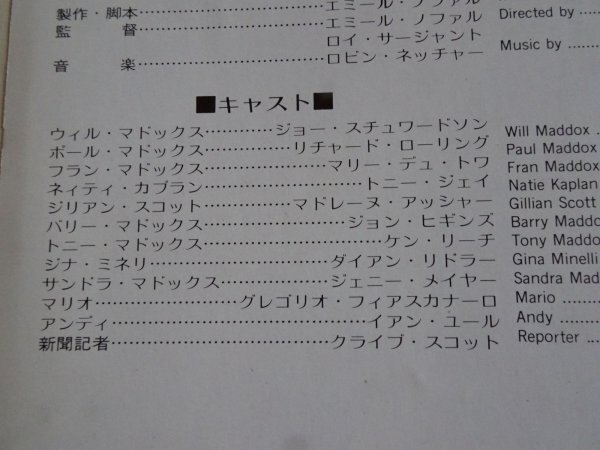 製作・脚本……………………エミール・ノファル
監　督……………………エミール・ノファル
ロイ・サージャント
音　楽……………………ロビン・ネッチャー
■キャスト■
ウィル・マドックス…………ジョー・スチュワードソン
ポール・マドックス……………リチャード・ローリング
フラン・マドックス………………マリー・デュ・トワ
ネィティ・カプラン…………………トニー・ジェイ
ジリアン・スコット……………マドレーヌ・アッシャー
バリー・マドックス………………ジョン・ヒギンズ
トニー・マドックス…………………ケン・リーチ
ジナ・ミネリ…………………ダイアン・リドラー
サンドラ・マドックス……………ジェニー・メイヤー
マリオ………………グレゴリオ・フィアスカナーロ
アンディ………………………イアン・ユール
新聞記者……………………クライブ・スコット
Directed by ......
Music by ......
Will Maddox .
Paul Maddox
Fran Maddox
Natie Kaplan
Gillian Scott
Barry Maddo
Tony Maddo
Gina Minelli
Sandra Mad
Mario ......
Andy ......
Reporter ...